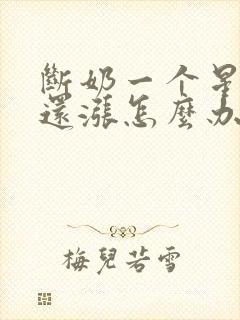 斷奶一个星
還漲怎麼办
梅兒若雪